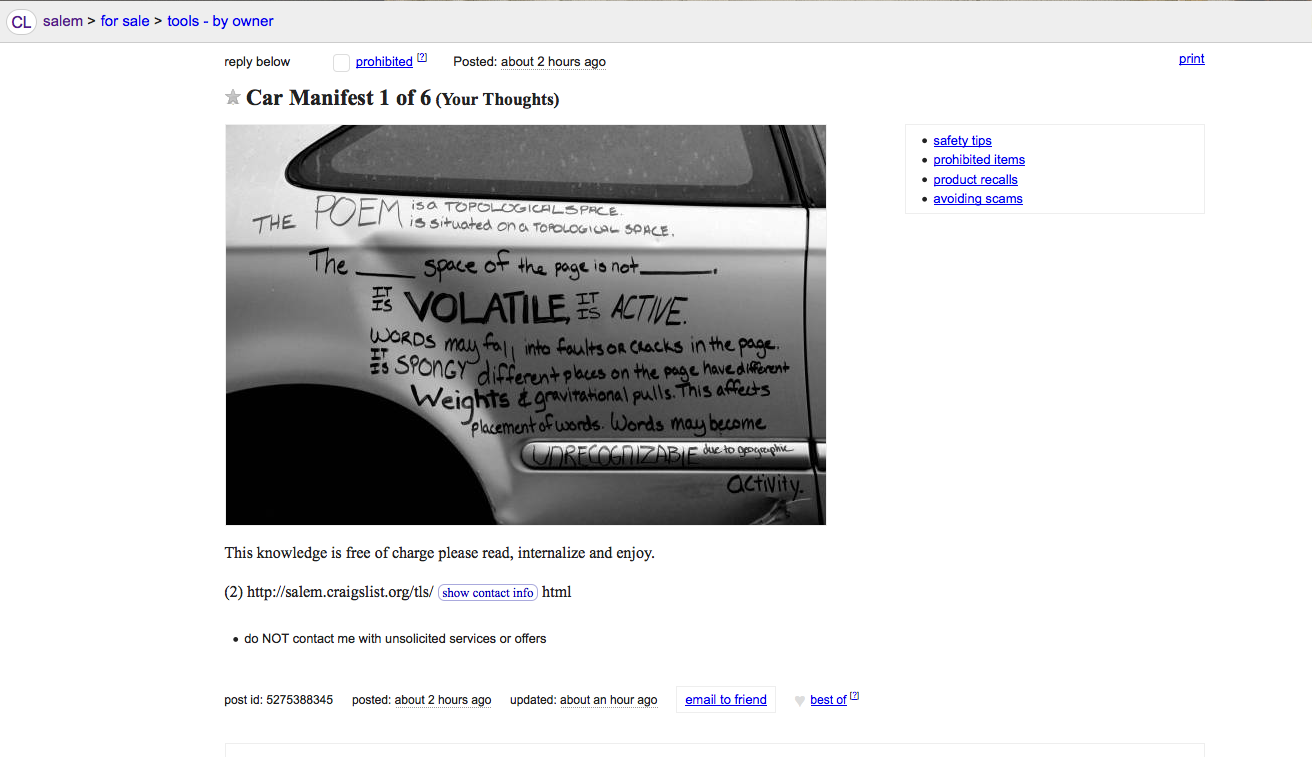 CL salem > for sale > tools - by owner
reply below prohibited [?] Posted: about 2 hours ago print
Car Manifest 1 of 6 (Your Thoughts)
safety tips
prohibited items
product recalls
avoiding scams
THE POEM is a TOPOLOGICAL SPACE.
is situated on a TOPOLOGICAL SPACE.
The _____ space of the page is not ______.
IT IS VOLATILE, IT IS ACTIVE.
WORDS may fall into faults OR CRACKS in the page.
IT IS SPONGY different places on the page have different
Weights & gravitational pulls. This affects
placement of words. Words may become
UNRECOGNIZABlE due to geographic
activity.
This knowledge is free of charge please read, internalize and enjoy.
(2) http://salem.craigslist.org/tls/ show contact info html
do NOT contact me with unsolicited services or offers
post id: 5275388345 posted: about 2 hours ago updated: about an hour ago email to friend best of [?]